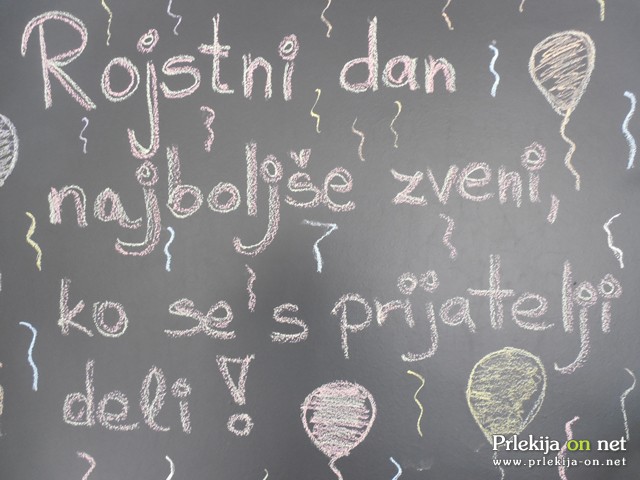 Rojstni dan
najboljše zveni,
ko se s prijatelji
deli!
Prlekija on net
www.prlekija-on.net